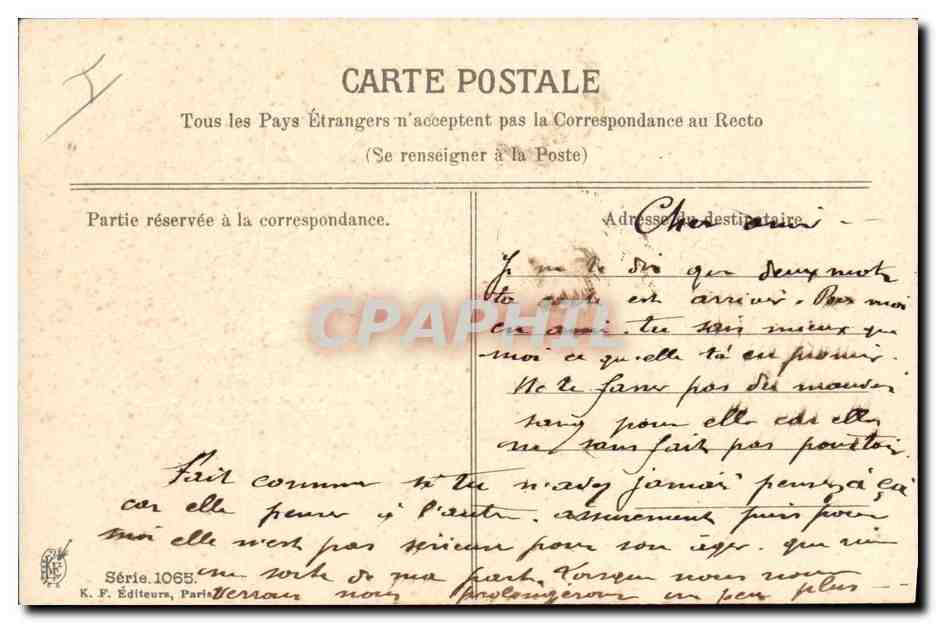 CARTE POSTALE
Tous les Pays Étrangers n'acceptent pas la Correspondance au Recto
(Se renseigner à la Poste)
Partie réservée à la correspondance.
Adresse du destinataire
Cher ami -
Je ne te dis que deux mots
ta carte est arrivée. Pour moi
en ami. tu sais mieux que
moi ce qu'elle t'a en promis.
Ne te faner pas du mauvais
sang pour elle car elle
ne sans fait pas pour toi.
Fait comme si tu n'avez jamais penser à ça
car elle penser à l'autre. assurement puis pour
moi elle n'est pas serieuse pour son âger. que rien
ne sorte de ma part. Lorsque nous nous
verrons nous prolongerons un peu plus -
CPAPHIL
KF
Série.1065.
K. F. Éditeurs, Paris